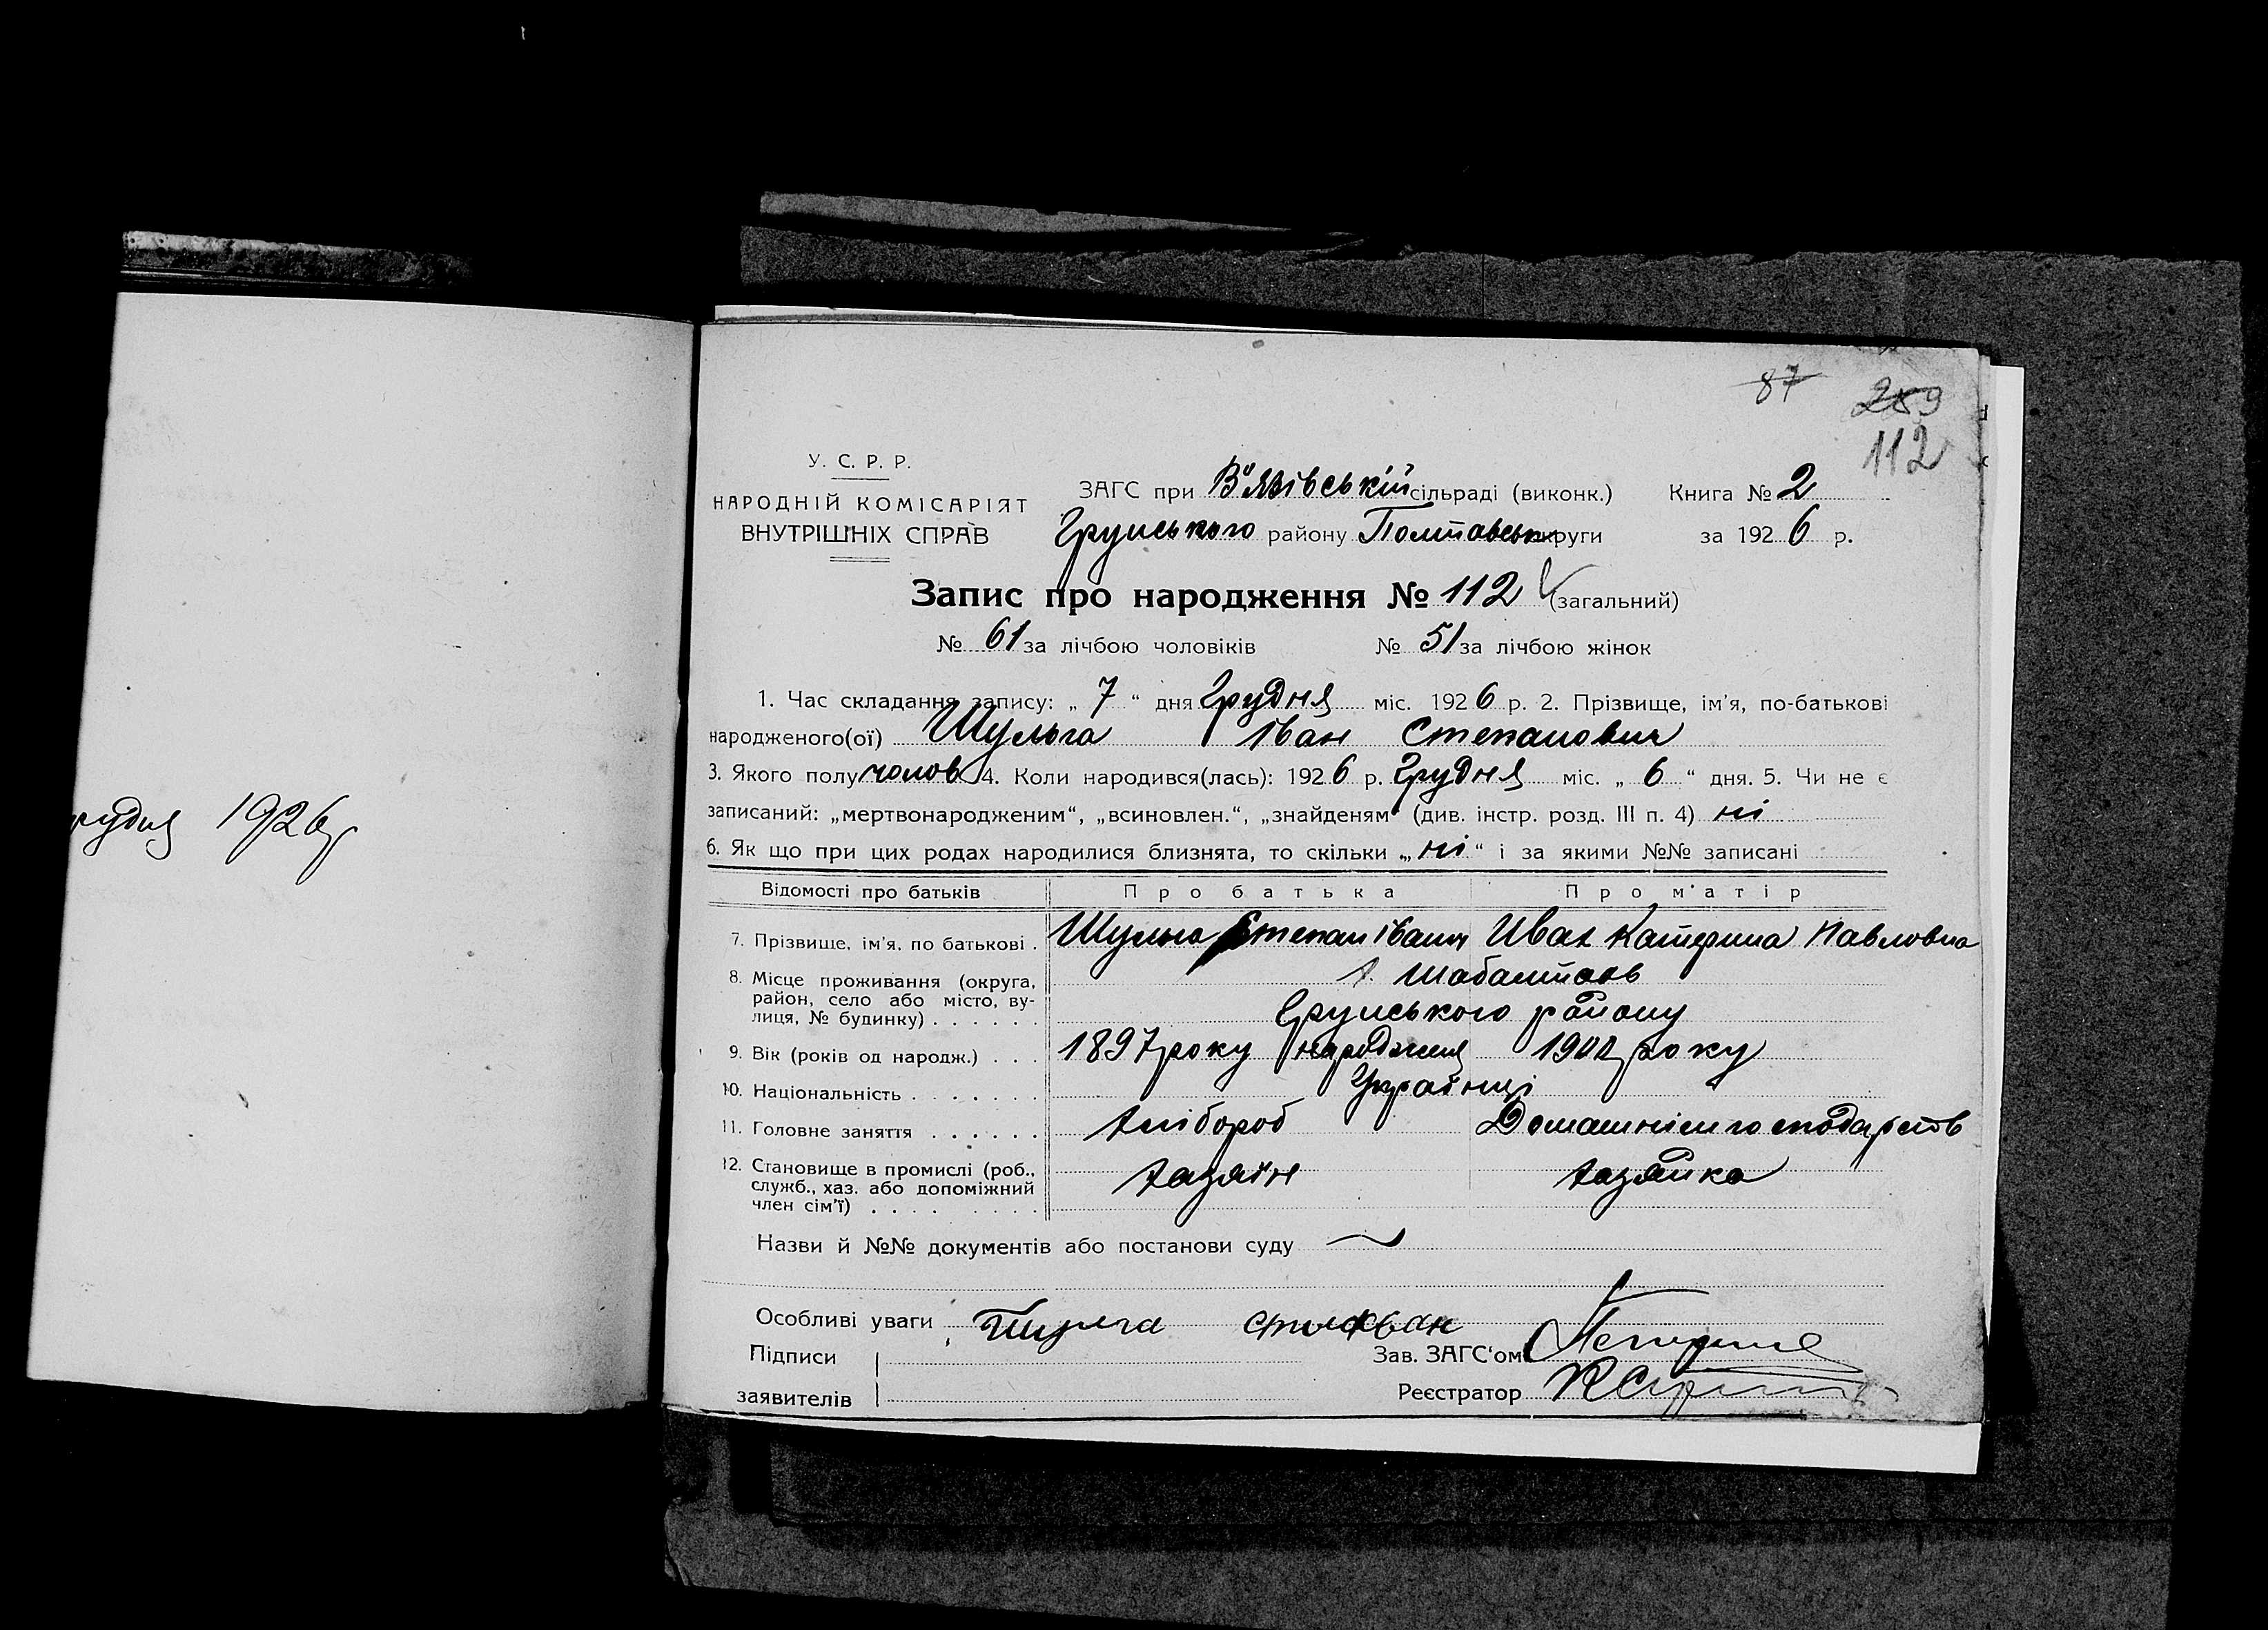 87
259
112
У. С. Р. Р.
НАРОДНІЙ КОМІСАРІЯТ
ВНУТРІШНІХ СПРАВ
ЗАГС при В'язівській сільраді (виконк.) Книга № 2
Грунського району Полтавськ округи за 1926 р.
Запис про народження № 112 (загальний)
№ 61 за лічбою чоловіків № 51 за лічбою жінок
1. Час складання запису: „ 7 “ дня Грудня міс. 1926 р. 2. Прізвище, ім'я, по-батькові
народженого(ої) Шульга Іван Степанович
3. Якого полу чолов 4. Коли народився(лась): 1926 р. Грудня міс. „ 6 “ дня. 5. Чи не є
записаний: „мертвонародженим“, „всиновлен.“, „знайденям“ (див. інстр. розд. III п. 4) ні
6. Як що при цих родах народилися близнята, то скільки „ ні “ і за якими №№ записані
рудня 1926р
Відомості про батьків Про батька Про матір
7. Прізвище, ім'я, по батькові . Шульга Степан Іванич Катерина Павловна
8. Місце проживання (округа,
район, село або місто, ву-
лиця, № будинку) . . . . . .
х. Шабалтаєв
Грунського району
9. Вік (років од народж.) . . . 1897 року народження року
10. Національність . . . . . . . Українці
11. Головне заняття . . . . . . Хлібороб Домашнім господарств
12. Становище в промислі (роб.,
служб., хаз. або допоміжний
член сім'ї) . . . . . . . . .
Хазяїн Хазяйка
Назви й №№ документів або постанови суду
Особливі уваги Шулга
Підписи
заявителів
Зав. ЗАГС'ом
Реєстратор